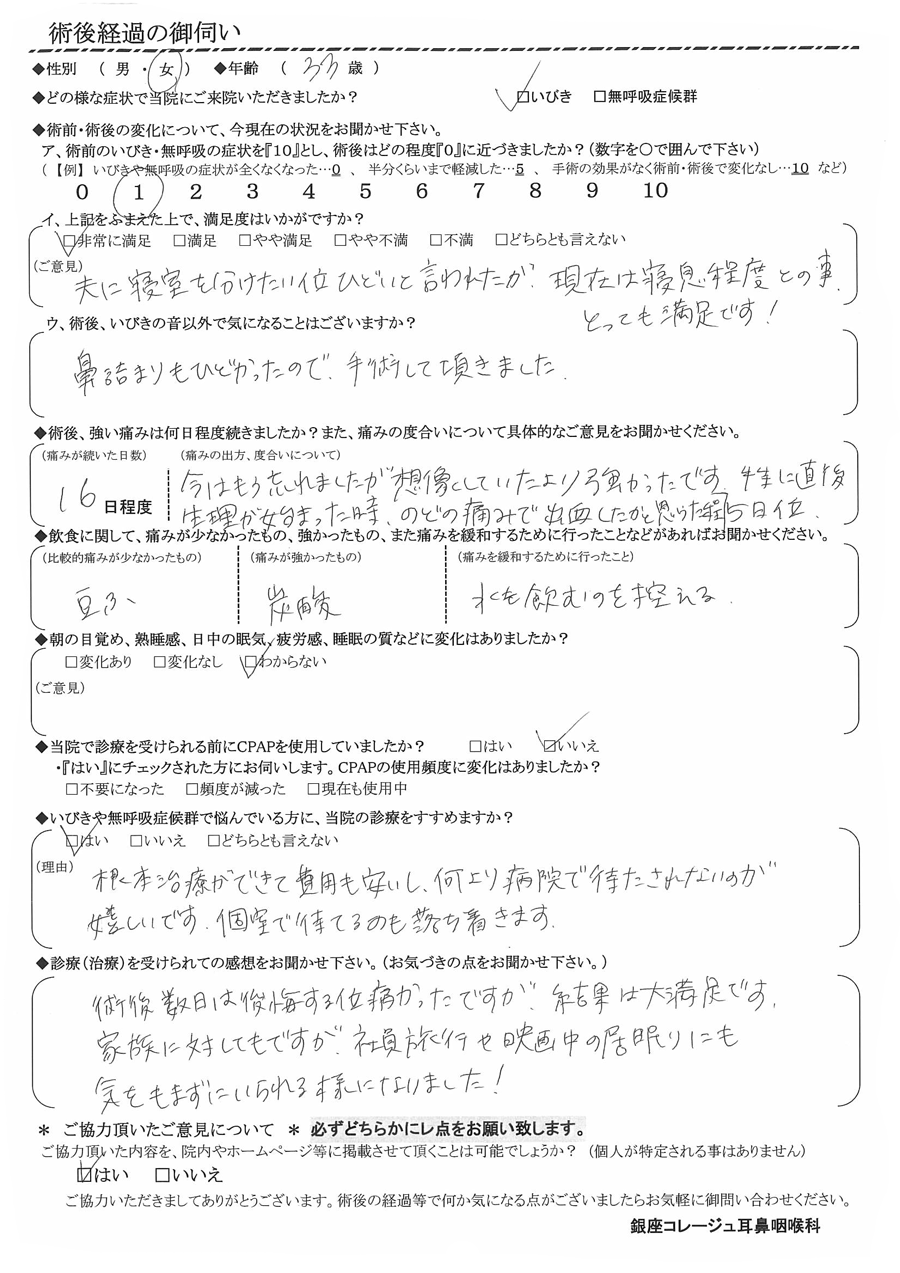 術後経過の御伺い
◆性別 ( 男 ・ 女 ) ◆年齢 ( 33 歳 )
◆どの様な症状で当院にご来院いただきましたか? ☑いびき □無呼吸症候群
◆術前・術後の変化について、今現在の状況をお聞かせ下さい。
ア、術前のいびき・無呼吸の症状を『10』とし、術後はどの程度『0』に近づきましたか?(数字を〇で囲んで下さい)
(【例】いびきや無呼吸の症状が全くなくなった…0 、 半分くらいまで軽減した…5 、 手術の効果がなく術前・術後で変化なし…10 など)
0 1 2 3 4 5 6 7 8 9 10
イ、上記をふまえた上で、満足度はいかがですか?
☑非常に満足 □満足 □やや満足 □やや不満 □不満 □どちらとも言えない
(ご意見)
夫に寝室を分けたい位ひどいと言われたが、現在は寝息程度との事、
とっても満足です!
ウ、術後、いびきの音以外で気になることはございますか?
鼻詰まりもひどかったので、手術して頂きました.
◆術後、強い痛みは何日程度続きましたか?また、痛みの度合いについて具体的なご意見をお聞かせください。
(痛みが続いた日数) (痛みの出方、度合いについて)
16 日程度
今はもう忘れましたが想像していたより強かったです。特に直後
生理が始まった時、のどの痛みで出血したかと思った程 5日位.
◆飲食に関して、痛みが少なかったもの、強かったもの、また痛みを緩和するために行ったことなどがあればお聞かせください。
(比較的痛みが少なかったもの) (痛みが強かったもの) (痛みを緩和するために行ったこと)
豆ふ 炭酸 水を飲むのを控える.
◆朝の目覚め、熟睡感、日中の眠気、疲労感、睡眠の質などに変化はありましたか?
□変化あり □変化なし ☑わからない
(ご意見)
◆当院で診療を受けられる前にCPAPを使用していましたか? □はい ☑いいえ
・『はい』にチェックされた方にお伺いします。CPAPの使用頻度に変化はありましたか?
□不要になった □頻度が減った □現在も使用中
◆いびきや無呼吸症候群で悩んでいる方に、当院の診療をすすめますか?
☑はい □いいえ □どちらとも言えない
(理由)
根本治療ができて費用も安いし、何より病院で待たされないのが
嬉しいです。個室で待てるのも落ち着きます.
◆診療(治療)を受けられての感想をお聞かせ下さい。(お気づきの点をお聞かせ下さい。)
術後数日は後悔する位痛かったですが、結果は大満足です。
家族に対してもですが、社員旅行や映画中の居眠りにも
気をもまずにいられる様になりました!
＊ ご協力頂いたご意見について ＊ 必ずどちらかにレ点をお願い致します。
ご協力頂いた内容を、院内やホームページ等に掲載させて頂くことは可能でしょうか? (個人が特定される事はありません)
☑はい □いいえ
ご協力いただきましてありがとうございます。術後の経過等で何か気になる点がございましたらお気軽に御問い合わせください。
銀座コレージュ耳鼻咽喉科